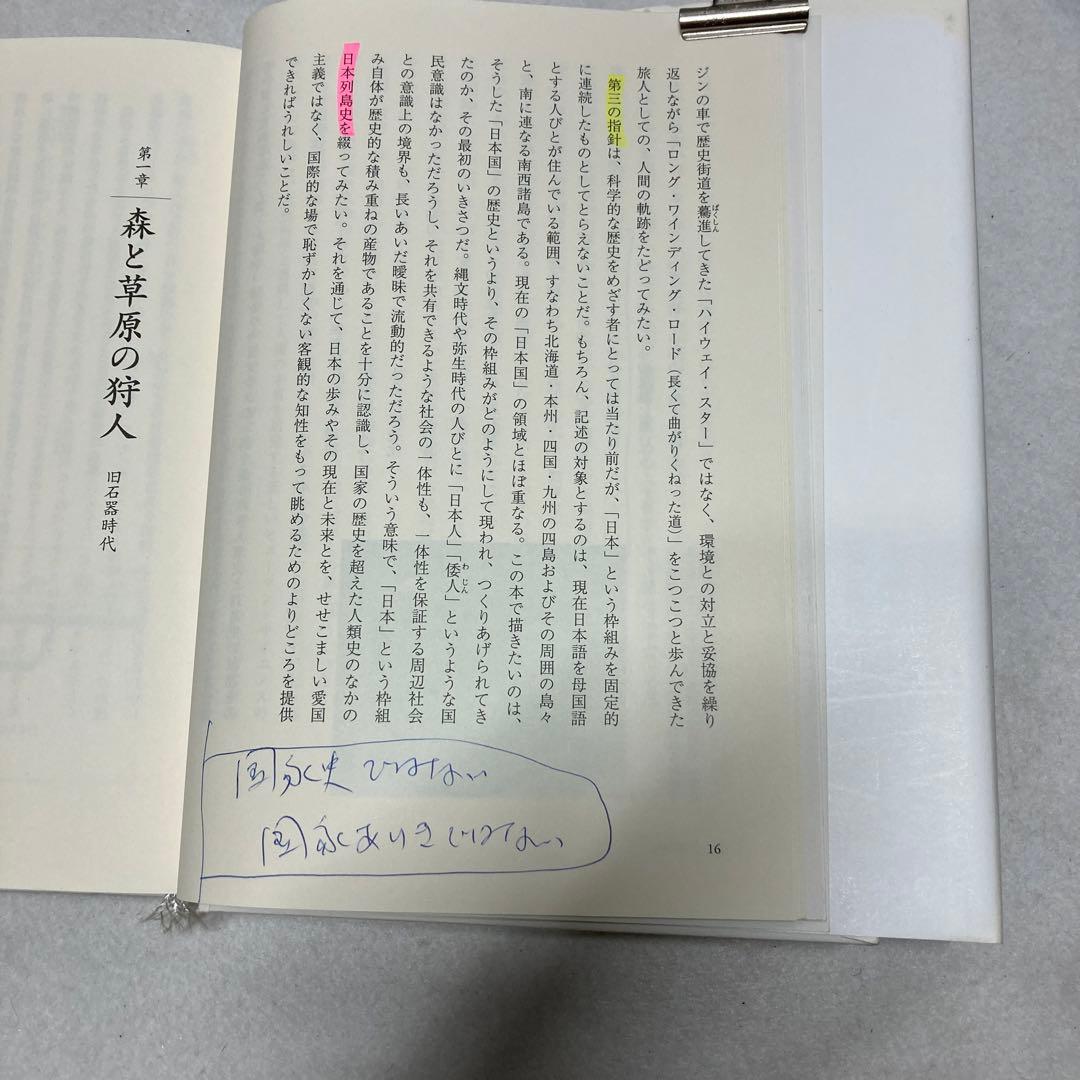 ジンの車で歴史街道を驀進してきた「ハイウェイ・スター」ではなく、環境との対立と妥協を繰り
ばくしん
返しながら「ロング・ワインディング・ロード（長くて曲がりくねった道）」をこつこつと歩んできた
旅人としての、人間の軌跡をたどってみたい。
第三の指針は、科学的な歴史をめざす者にとっては当たり前だが、「日本」という枠組みを固定的
に連続したものとしてとらえないことだ。もちろん、記述の対象とするのは、現在日本語を母国語
とする人びとが住んでいる範囲、すなわち北海道・本州・四国・九州の四島およびその周囲の島々
と、南に連なる南西諸島である。現在の「日本国」の領域とほぼ重なる。この本で描きたいのは、
そうした「日本国」の歴史というより、その枠組みがどのようにして現われ、つくりあげられてき
たのか、その最初のいきさつだ。縄文時代や弥生時代の人びとに「日本人」「倭人」というような国
わじん
民意識はなかっただろうし、それを共有できるような社会の一体性も、一体性を保証する周辺社会
との意識上の境界も、長いあいだ曖昧で流動的だっただろう。そういう意味で、「日本」という枠組
み自体が歴史的な積み重ねの産物であることを十分に認識し、国家の歴史を超えた人類史のなかの
日本列島史を綴ってみたい。それを通じて、日本の歩みやその現在と未来とを、せせこましい愛国
主義ではなく、国際的な場で恥ずかしくない客観的な知性をもって眺めるためのよりどころを提供
できればうれしいことだ。
国家史ではない
国家ありきではない
16
第一章
森と草原の狩人
旧石器時代